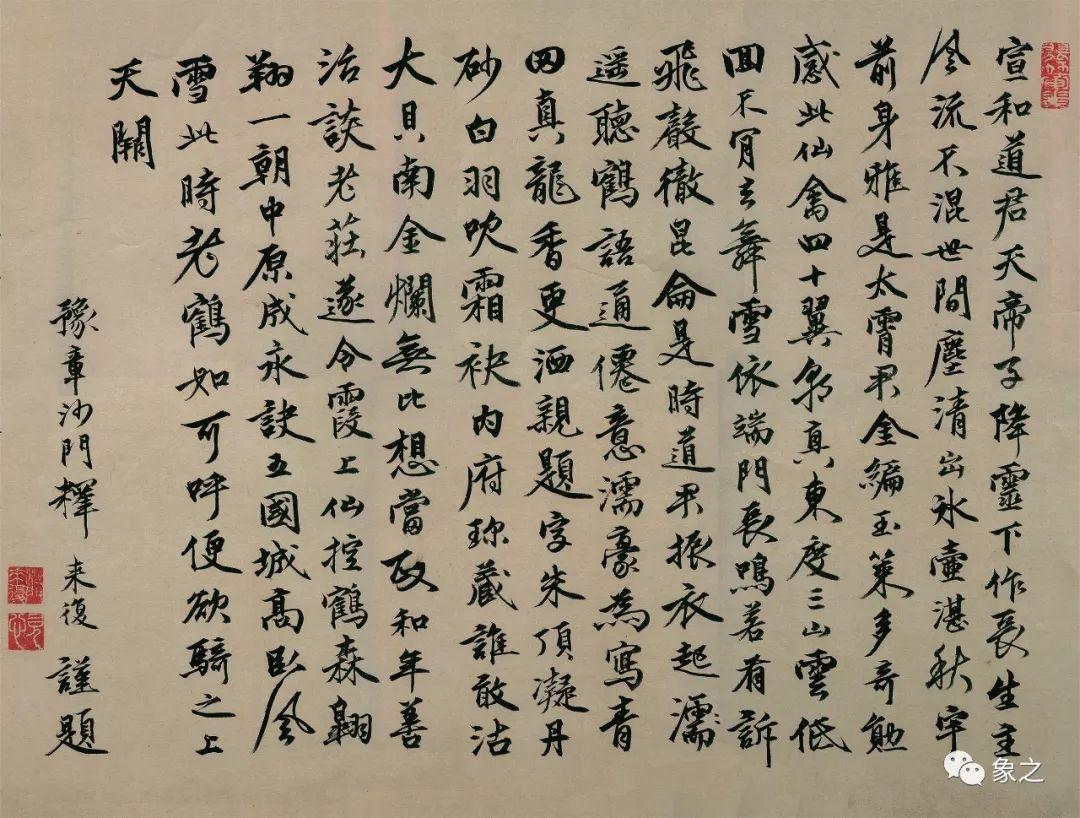 宣和道君天帝子降靈下作長生主
風流不混世間塵清出氷壺湛秋宇
前身雅是太霄君金編玉策多奇勳
感此仙禽四十翼朝真東度三山雲低
囬不肎去舞雪依端門長鳴若有訴
飛聲徹昆侖是時道君振衣起濡
遥聽鶴語通僊意濡豪為寫青
田真龍香更洒親題字朱頂凝丹
砂白羽吹霜袂内府珎藏誰敢沽
大貝南金爛無比想當政和年善
治談老莊遂令霞上仙控鶴森翱
翔一朝中原成永訣五國城高臥風
雪此時老鶴如可呼便欲騎之上
天闕
豫章沙門釋来復謹題
象之